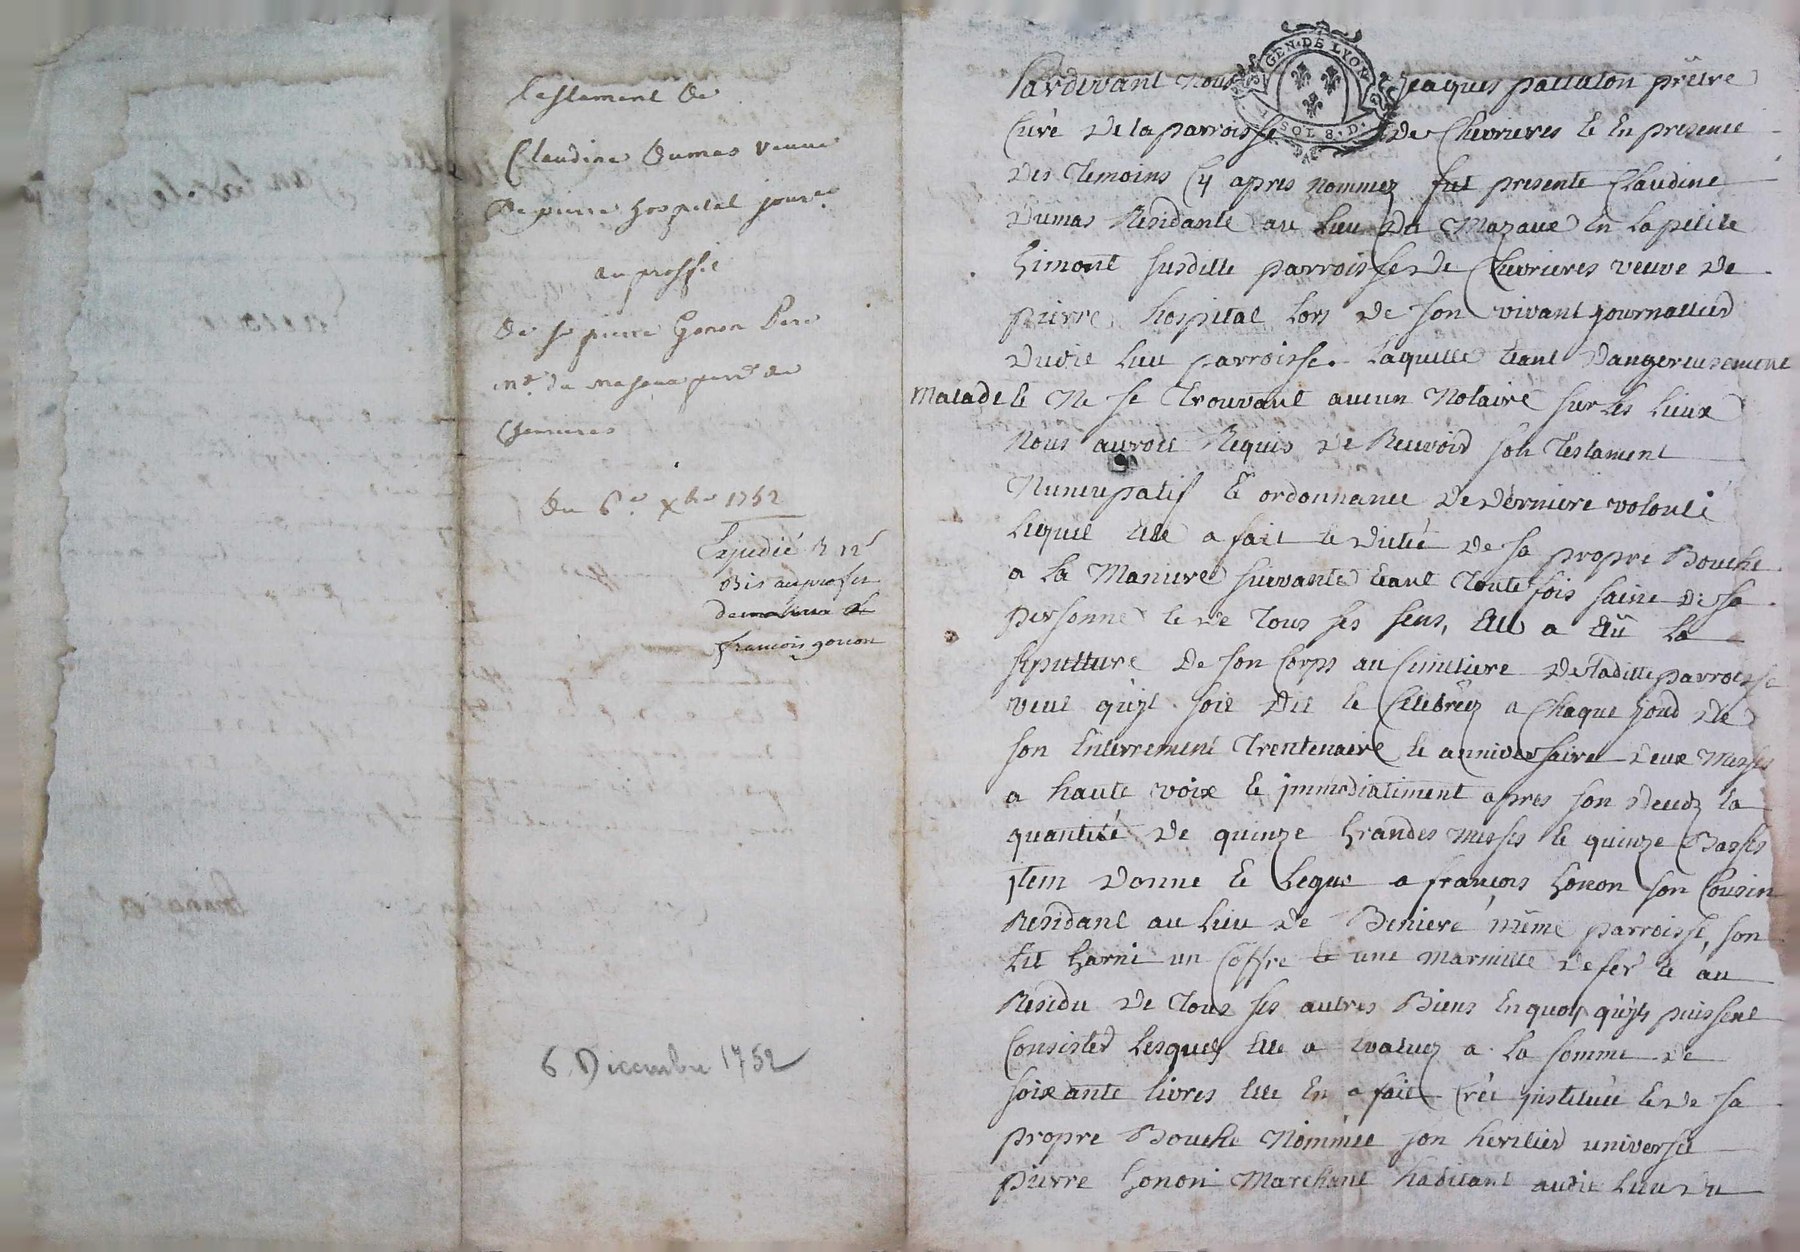 Testament de
Claudine Dumas veuve
de pierre hospital jour.er
au proffit
de sr pierre Gonon
md du
Chevrieres
du 6e xbre 1752
Expedié
au profit
françois gonon
6 Decembre 1752
GEN. DE LYON
SOL 8. D.
Pardevant Nous Jeaques pattuton prêtre
Curé De la parroisse De Chevrieres Et En presence
Des Temoins Cy apres Nommez fut presente Claudine
Dumas Residante au Lieu Du Mazaux En La petite
Gimont susditte parroisse De Chevrieres veuve De
pierre hospital Lors De son vivant journallier
Dudit Lieu parroisse. Laquelle Etant Dangereusement
Malade Et Ne se Trouvant aucun Notaire sur Les Lieux
Nous auroit Requis De Recevoir son Testament
Nuncupatif Et ordonnance De Derniere volonté
Lequel Elle a fait Et Dicté De sa propre Bouche
a La Maniere suivante Etant Toute fois saine De sa
personne Et De Tous ses sens, Elle a Elû La
sepulture De son Corps au Cimetiere De Laditte parroisse
veut qu'yl soit Dit Et Celebréz a Chaque jour De
son Enterrement Trentenaire Et anniversaire Deux Messes
a haute voix Et jmmediatement apres son Decedz La
quantité De quinze Grandes Messes Et quinze Basses
jtem Donne Et Legue a françois Gonon son Cousin
Residant au Lieu De Beniere même parroisse, son
Lit Garni un Coffre Et une Marmitte De fer Et au
Residu De Tous ses autres Biens En quoy qu'yls puissent
Consister Lesquels Elle a Evaluéz a La somme De
soixante Livres Elle En a fait Créé jnstitué Et De sa
propre Bouche Nommée son heritier universel
pierre Gonon Marchant habitant audit Lieu Du